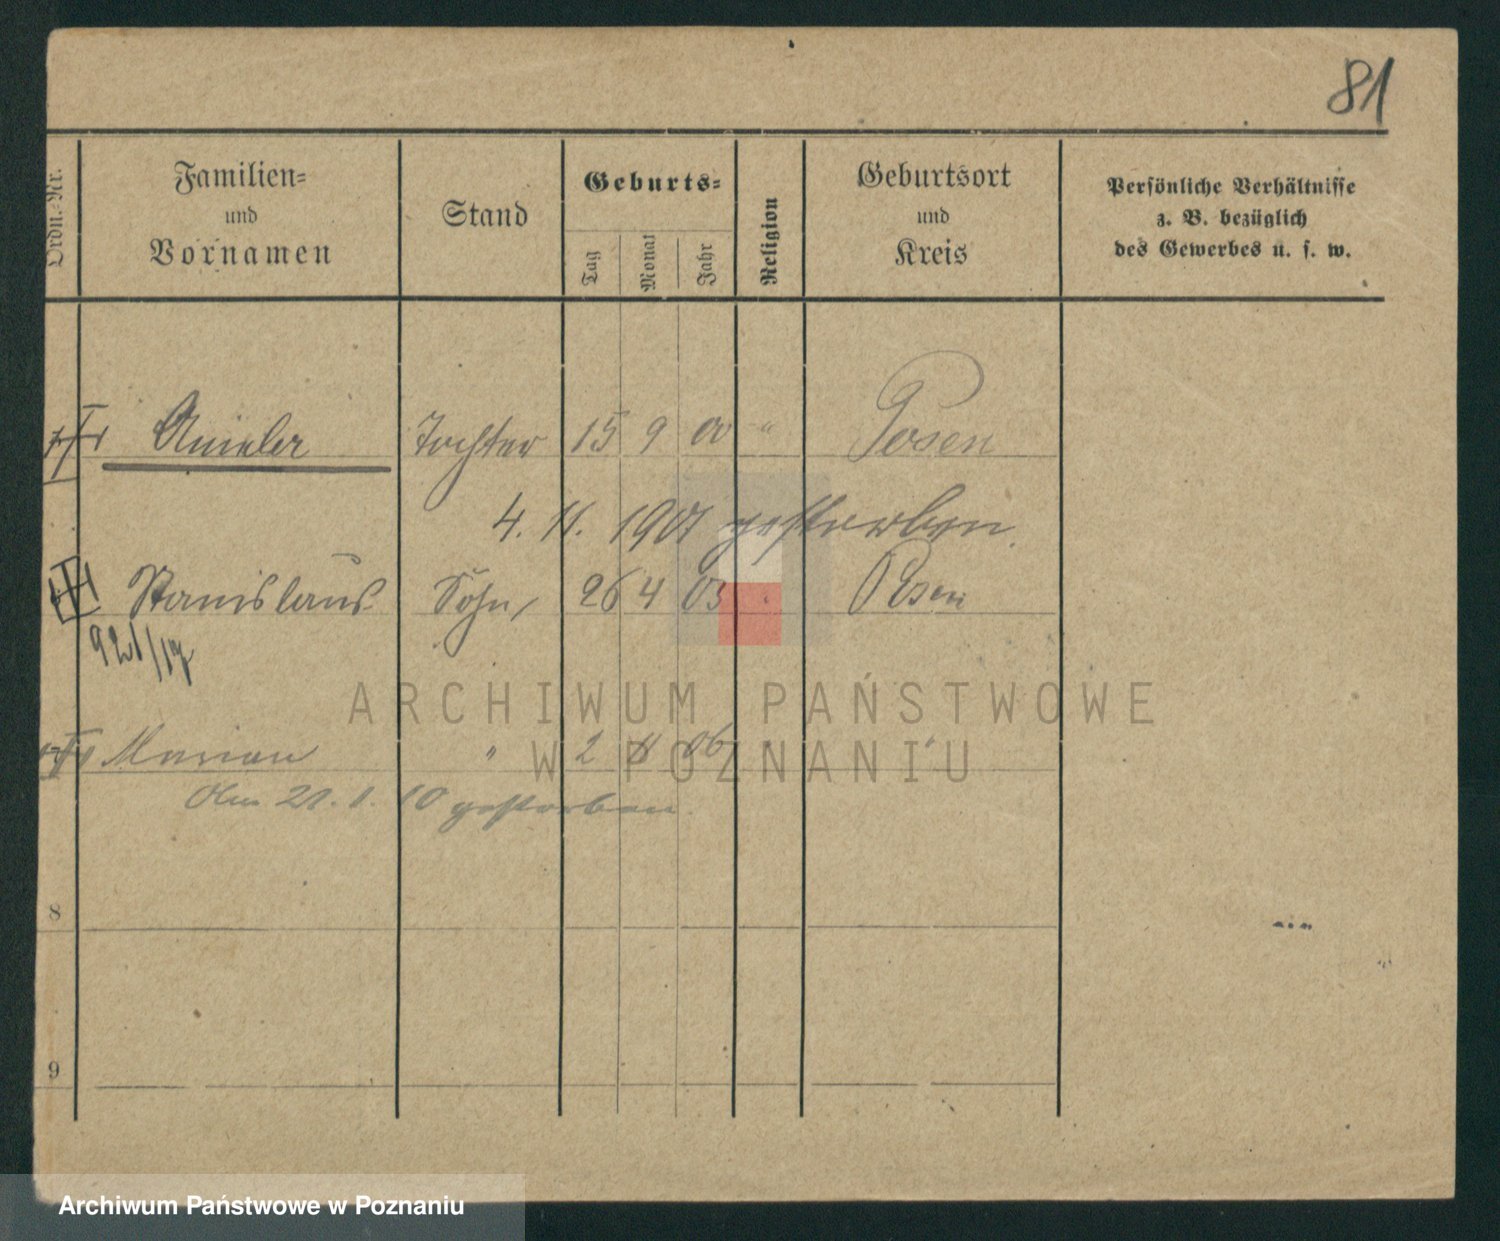 81
Ordn.-Nr.
Familien=
und
Vornamen
Stand
Geburts=
Tag
Monat
Jahr
Religion
Geburtsort
und
Kreis
Persönliche Verhältnisse
z. B. bezüglich
des Gewerbes u. s. w.
Tochter 15 9 00 " Posen
4. 11. 1901 gestorben.
Stanislaus Sohn 26 4 03 " Posen
921/17
Marian " 2 11 06 " "
21. 1. 10 gestorben.
8
9
ARCHIWUM PAŃSTWOWE
W POZNANIU
Archiwum Państwowe w Poznaniu